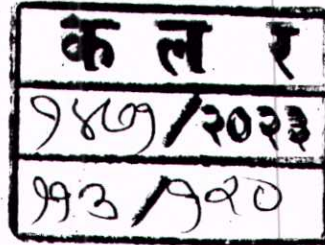 क ल र
१४७१/२०२३
११३/१२०